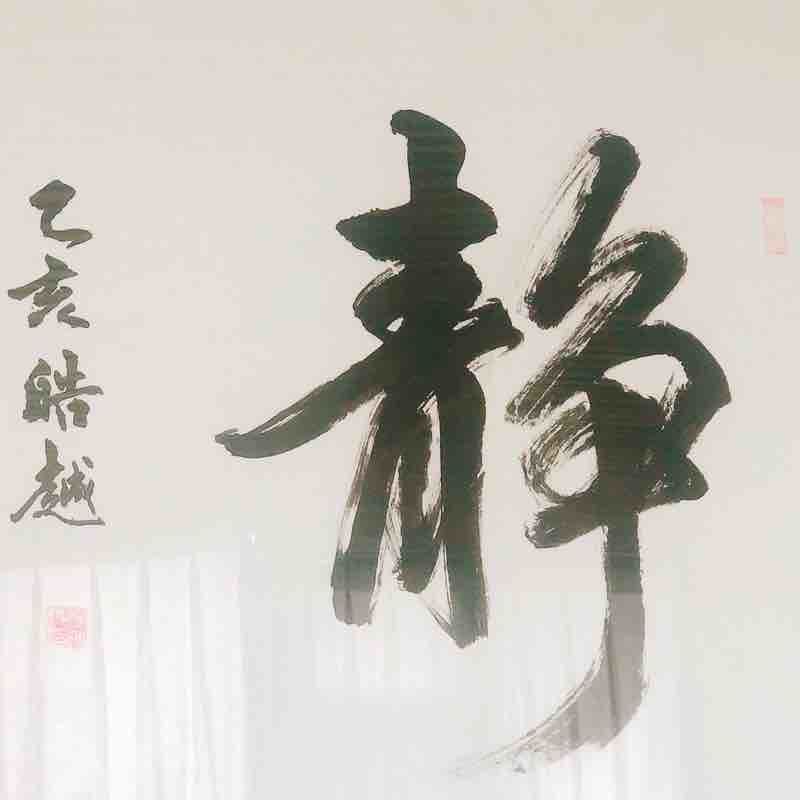 静
乙亥皓越